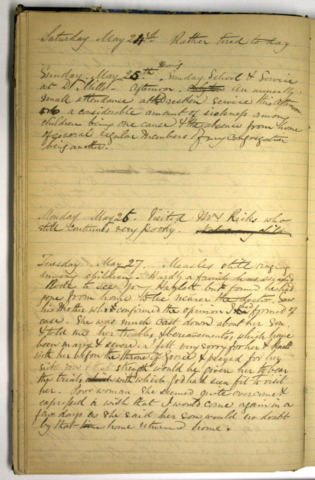 Saturday May 24th. Rather tired to day.
Sunday May 25th Sunday School & Service
at Dr. Mills. Afternoon. An unusually
small attendance at service this after
a considerable amount of sickness among
children being one cause & the absence from home
of several regular members of my congregation
being another.
Monday May 26. Visited Mrs Ricks who
still continues very poorly.
Tuesday May 27. Measles still raging
among children. Hardly a family
Rode to see Geo. but found he had
gone from home to be nearer the doctor. Saw
his Mother who confirmed the opinion I had formed of
case. She was much cast down about her son
& told me her troubles & bereavements which have
been many & severe. I felt very sorry for her &
with her before the throne of Grace & prayed for her
strength would be given her to bear
the trials with which God had seen fit to visit
her. Poor woman she seemed quite overcome &
expressed a wish that I would come again in a
few days as she said her son would no doubt
by that time have returned home.